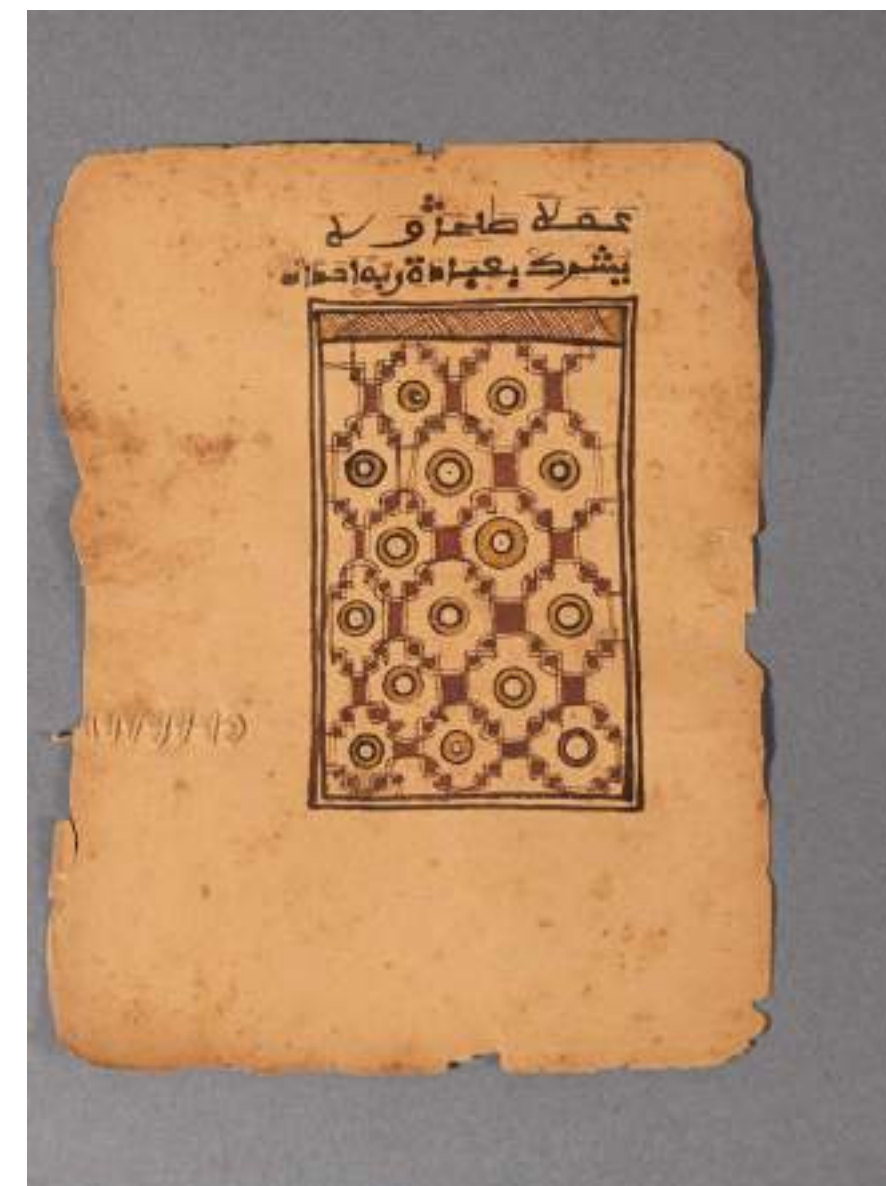 عملا صلحا ولا
يشرك بعبادة ربه احدا